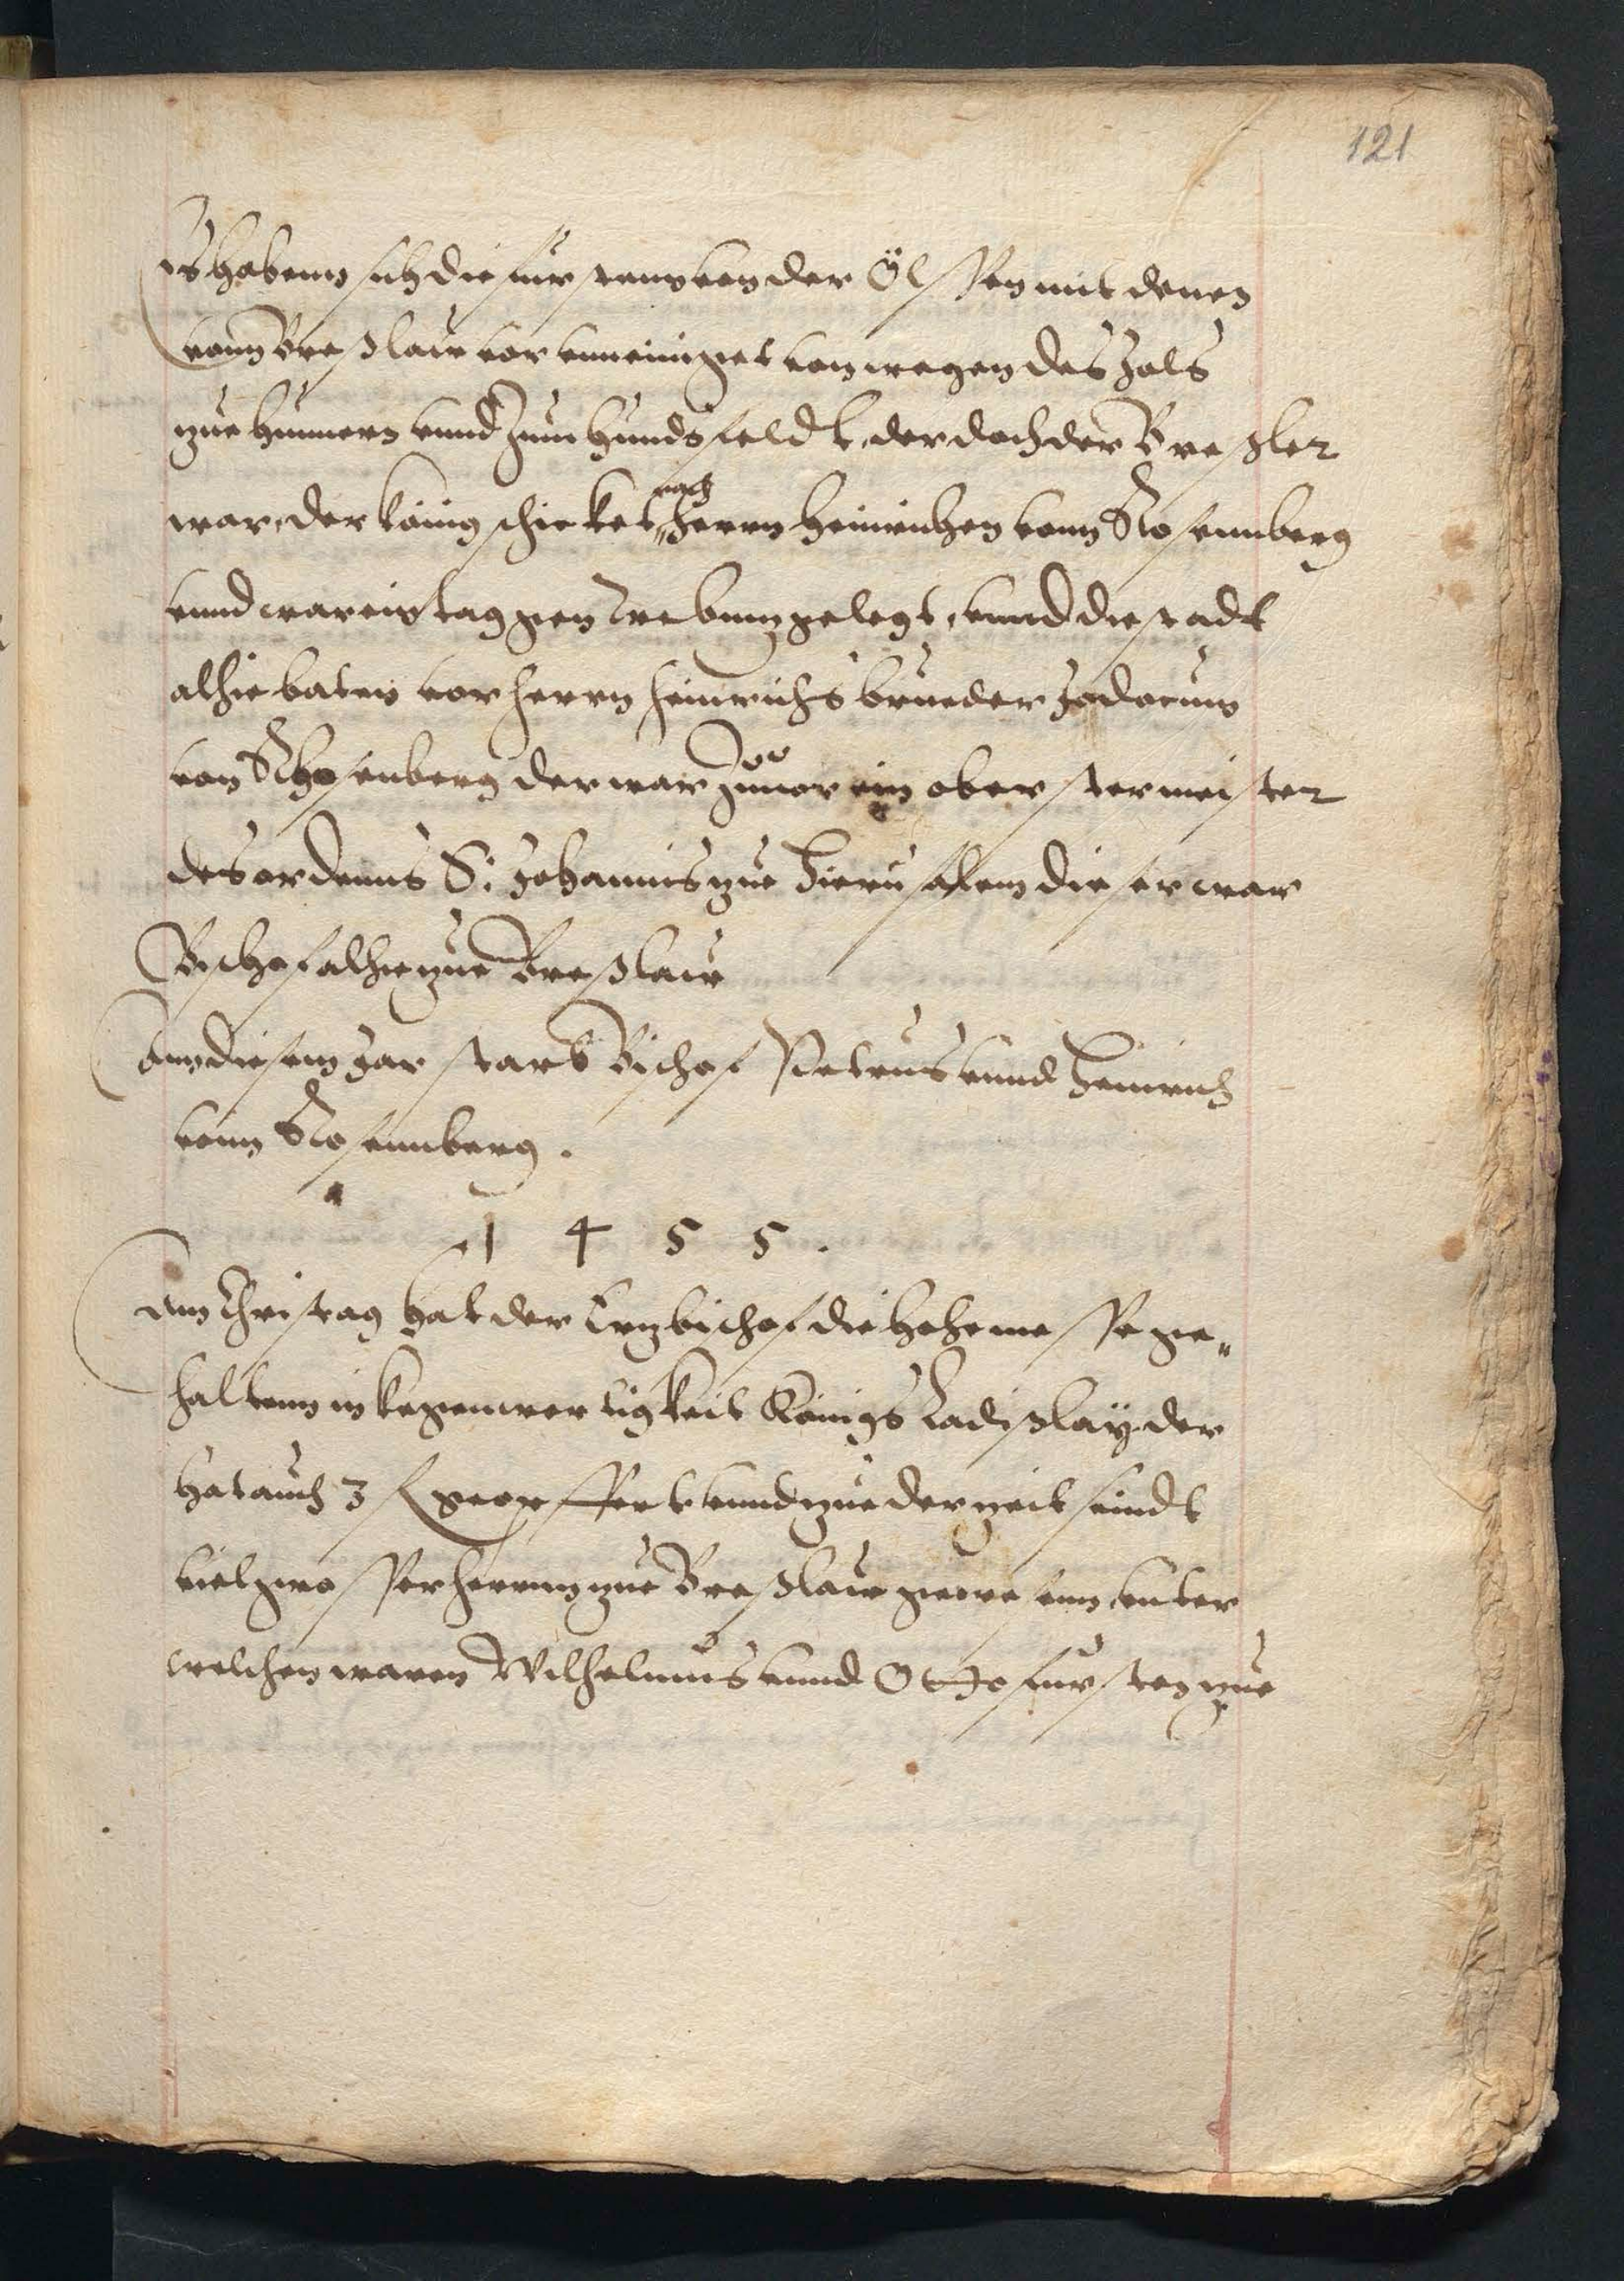 121
Es habenn sich die furstenn von der Ölssen mit denen
vonn Breßlaw vor vnneiniget von wegen des Zols
zue Hunnern vnnd Zum Hundsfeldt, der doch der Breßler
war, der könig schicket nach Herrn Heinrichen vonn Rosennberg
vnnd war ein tag gen Trebnnz gelegt, vnnd die stadt
alhie baten vor Herrn Heinrichs brueder Jodocum
von Rhosenberg der war Zuuor ein oberster meister
des ordenns S: Johannis zue Hierusalem dieser war
Bischof alhie zue Breßlaw
Ann diesem Jar starb Bischof Petrus vnnd Heinrich
vonn Rosennberg.
1 4 5 5.
Am Christag hat der Ertzbischof die hohe messe ge„
haltenn in kegenwertigkeit Königs Ladißlay der
hat auch 3 fl geopffert vnnd zue der zeit seindt
viel grosser herrenn zue Breßlaw gewesenn, vnter
welchen waren Wilhelmus vnnd Otto fursten zue